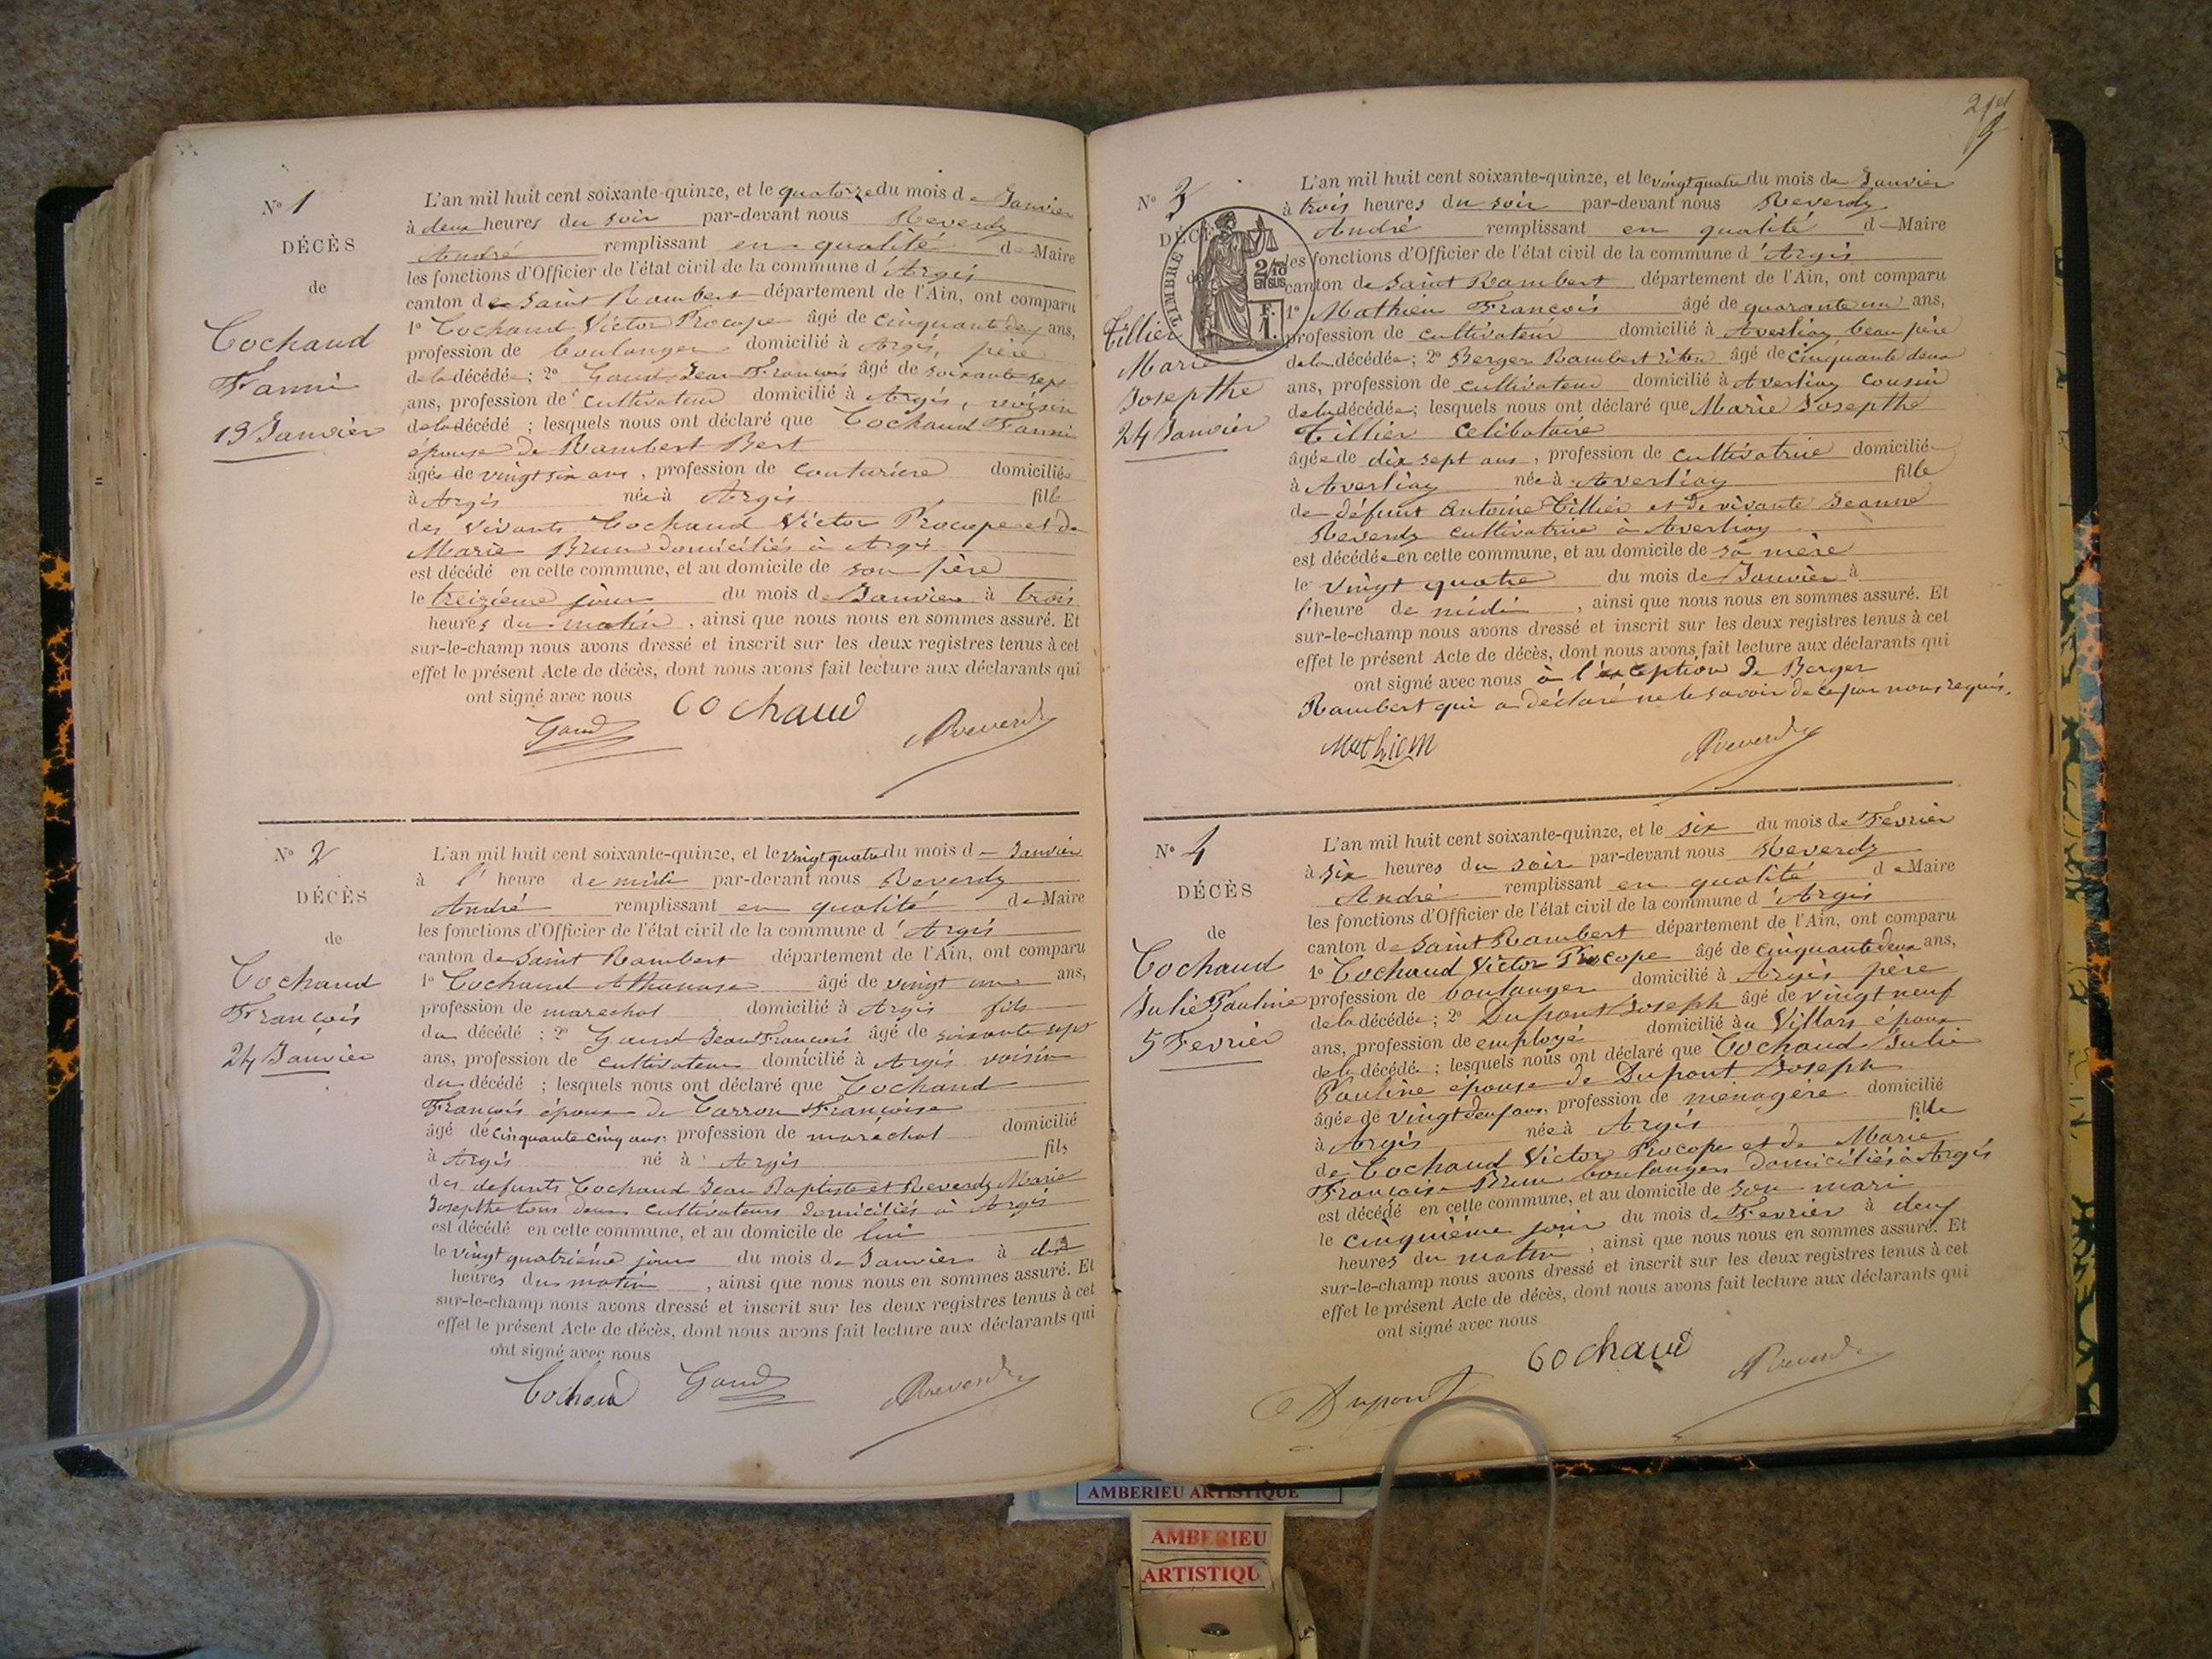 N° 1
DÉCÈS
de
Cochaud
Fanni
13 Janvier
L'an mil huit cent soixante-quinze, et le quatorze du mois de Janvier
à deux heures du soir par-devant nous Reverdy
André remplissant en qualité de Maire
les fonctions d'Officier de l'état civil de la commune d'Argis
canton de Saint Rambert département de l'Ain, ont comparu
1° Cochaud Victor Procope âgé de cinquante deux ans,
profession de boulanger domicilié à Argis, père
de la décédée ; 2° Gaud Jean François âgé de soixante sept
ans, profession de cultivateur domicilié à Argis, voisin
de la décédé ; lesquels nous ont déclaré que Cochaud Fanni
épouse de Rambert Bert
âgée de vingt six ans, profession de couturière domiciliée
à Argis née à Argis fille
des vivants Cochaud Victor Procope et de
Marie Brun domiciliés à Argis
est décédé en cette commune, et au domicile de son père
le treizième jour du mois de Janvier à trois
heures du matin, ainsi que nous nous en sommes assuré. Et
sur-le-champ nous avons dressé et inscrit sur les deux registres tenus à cet
effet le présent Acte de décès, dont nous avons fait lecture aux déclarants qui
ont signé avec nous
Cochaud
Gaud
AReverdy
N° 2
DÉCÈS
de
Cochaud
François
24 Janvier
L'an mil huit cent soixante-quinze, et le vingt quatre du mois de Janvier
à l'heure de midi par-devant nous Reverdy
André remplissant en qualité de Maire
les fonctions d'Officier de l'état civil de la commune d'Argis
canton de Saint Rambert département de l'Ain, ont comparu
1° Cochaud Athanase âgé de vingt un ans,
profession de maréchal domicilié à Argis fils
du décédé ; 2° Gaud Jean François âgé de soixante sept
ans, profession de cultivateur domicilié à Argis voisin
du décédé ; lesquels nous ont déclaré que Cochaud
François époux de Carron Françoise
âgé de cinquante cinq ans, profession de maréchal domicilié
à Argis né à Argis fils
des defunts Cochaud Jean Baptiste et Reverdy Marie
Josepthe tous deux cultivateurs domiciliés à Argis
est décédé en cette commune, et au domicile de lui
le vingt quatrième jour du mois de Janvier à dix
heures du matin, ainsi que nous nous en sommes assuré. Et
sur-le-champ nous avons dressé et inscrit sur les deux registres tenus à cet
effet le présent Acte de décès, dont nous avons fait lecture aux déclarants qui
ont signé avec nous
Cochaud Gaud AReverdy
N° 3
DÉCÈS
de
Tillier
Marie
Josepthe
24 Janvier
TIMBRE
2/10
EN SUS
F.
1.
L'an mil huit cent soixante-quinze, et le vingt quatre du mois de Janvier
à trois heures du soir par-devant nous Reverdy
André remplissant en qualité de Maire
les fonctions d'Officier de l'état civil de la commune d'Argis
canton de Saint Rambert département de l'Ain, ont comparu
1° Mathieu François âgé de quarante un ans,
profession de cultivateur domicilié à Averliaz beau père
de la décédée ; 2° Berger Rambert âgé de cinquante deux
ans, profession de cultivateur domicilié à Averliaz cousin
de la décédée ; lesquels nous ont déclaré que Marie Josepthe
Tillier Célibataire
âgée de dix sept ans, profession de cultivatrice domiciliée
à Averliaz née à Averliaz fille
de défunt Antoine Tillier et de vivante Jeanne
Reverdy cultivatrice à Averliaz
est décédée en cette commune, et au domicile de sa mère
le vingt quatre du mois de Janvier à
l'heure de midi, ainsi que nous nous en sommes assuré. Et
sur-le-champ nous avons dressé et inscrit sur les deux registres tenus à cet
effet le présent Acte de décès, dont nous avons fait lecture aux déclarants qui
ont signé avec nous à l'exception de Berger
Rambert qui a déclaré ne le savoir de ce par nous requis.
Mathieu AReverdy
N° 4
DÉCÈS
de
Cochaud
Julie Pauline
5 Fevrier
L'an mil huit cent soixante-quinze, et le six du mois de Fevrier
à six heures du soir par-devant nous Reverdy
André remplissant en qualité de Maire
les fonctions d'Officier de l'état civil de la commune d'Argis
canton de Saint Rambert département de l'Ain, ont comparu
1° Cochaud Victor Procope âgé de cinquante deux ans,
profession de boulanger domicilié à Argis père
de la décédée ; 2° Dupont Joseph âgé de vingt neuf
ans, profession de employé domicilié à Villars époux
de la décédée ; lesquels nous ont déclaré que Cochaud Julie
Pauline épouse de Dupont Joseph
âgée de vingt deux ans, profession de ménagère domicilié
à Argis née à Argis fille
de Cochaud Victor Procope et de Marie
Françoise Brun boulangers domiciliés à Argis
est décédé en cette commune, et au domicile de son mari
le cinquième jour du mois de Fevrier à deux
heures du matin, ainsi que nous nous en sommes assuré. Et
sur-le-champ nous avons dressé et inscrit sur les deux registres tenus à cet
effet le présent Acte de décès, dont nous avons fait lecture aux déclarants qui
ont signé avec nous
Cochaud AReverdy
Dupont
AMBERIEU ARTISTIQUE
AMBERIEU
ARTISTIQU